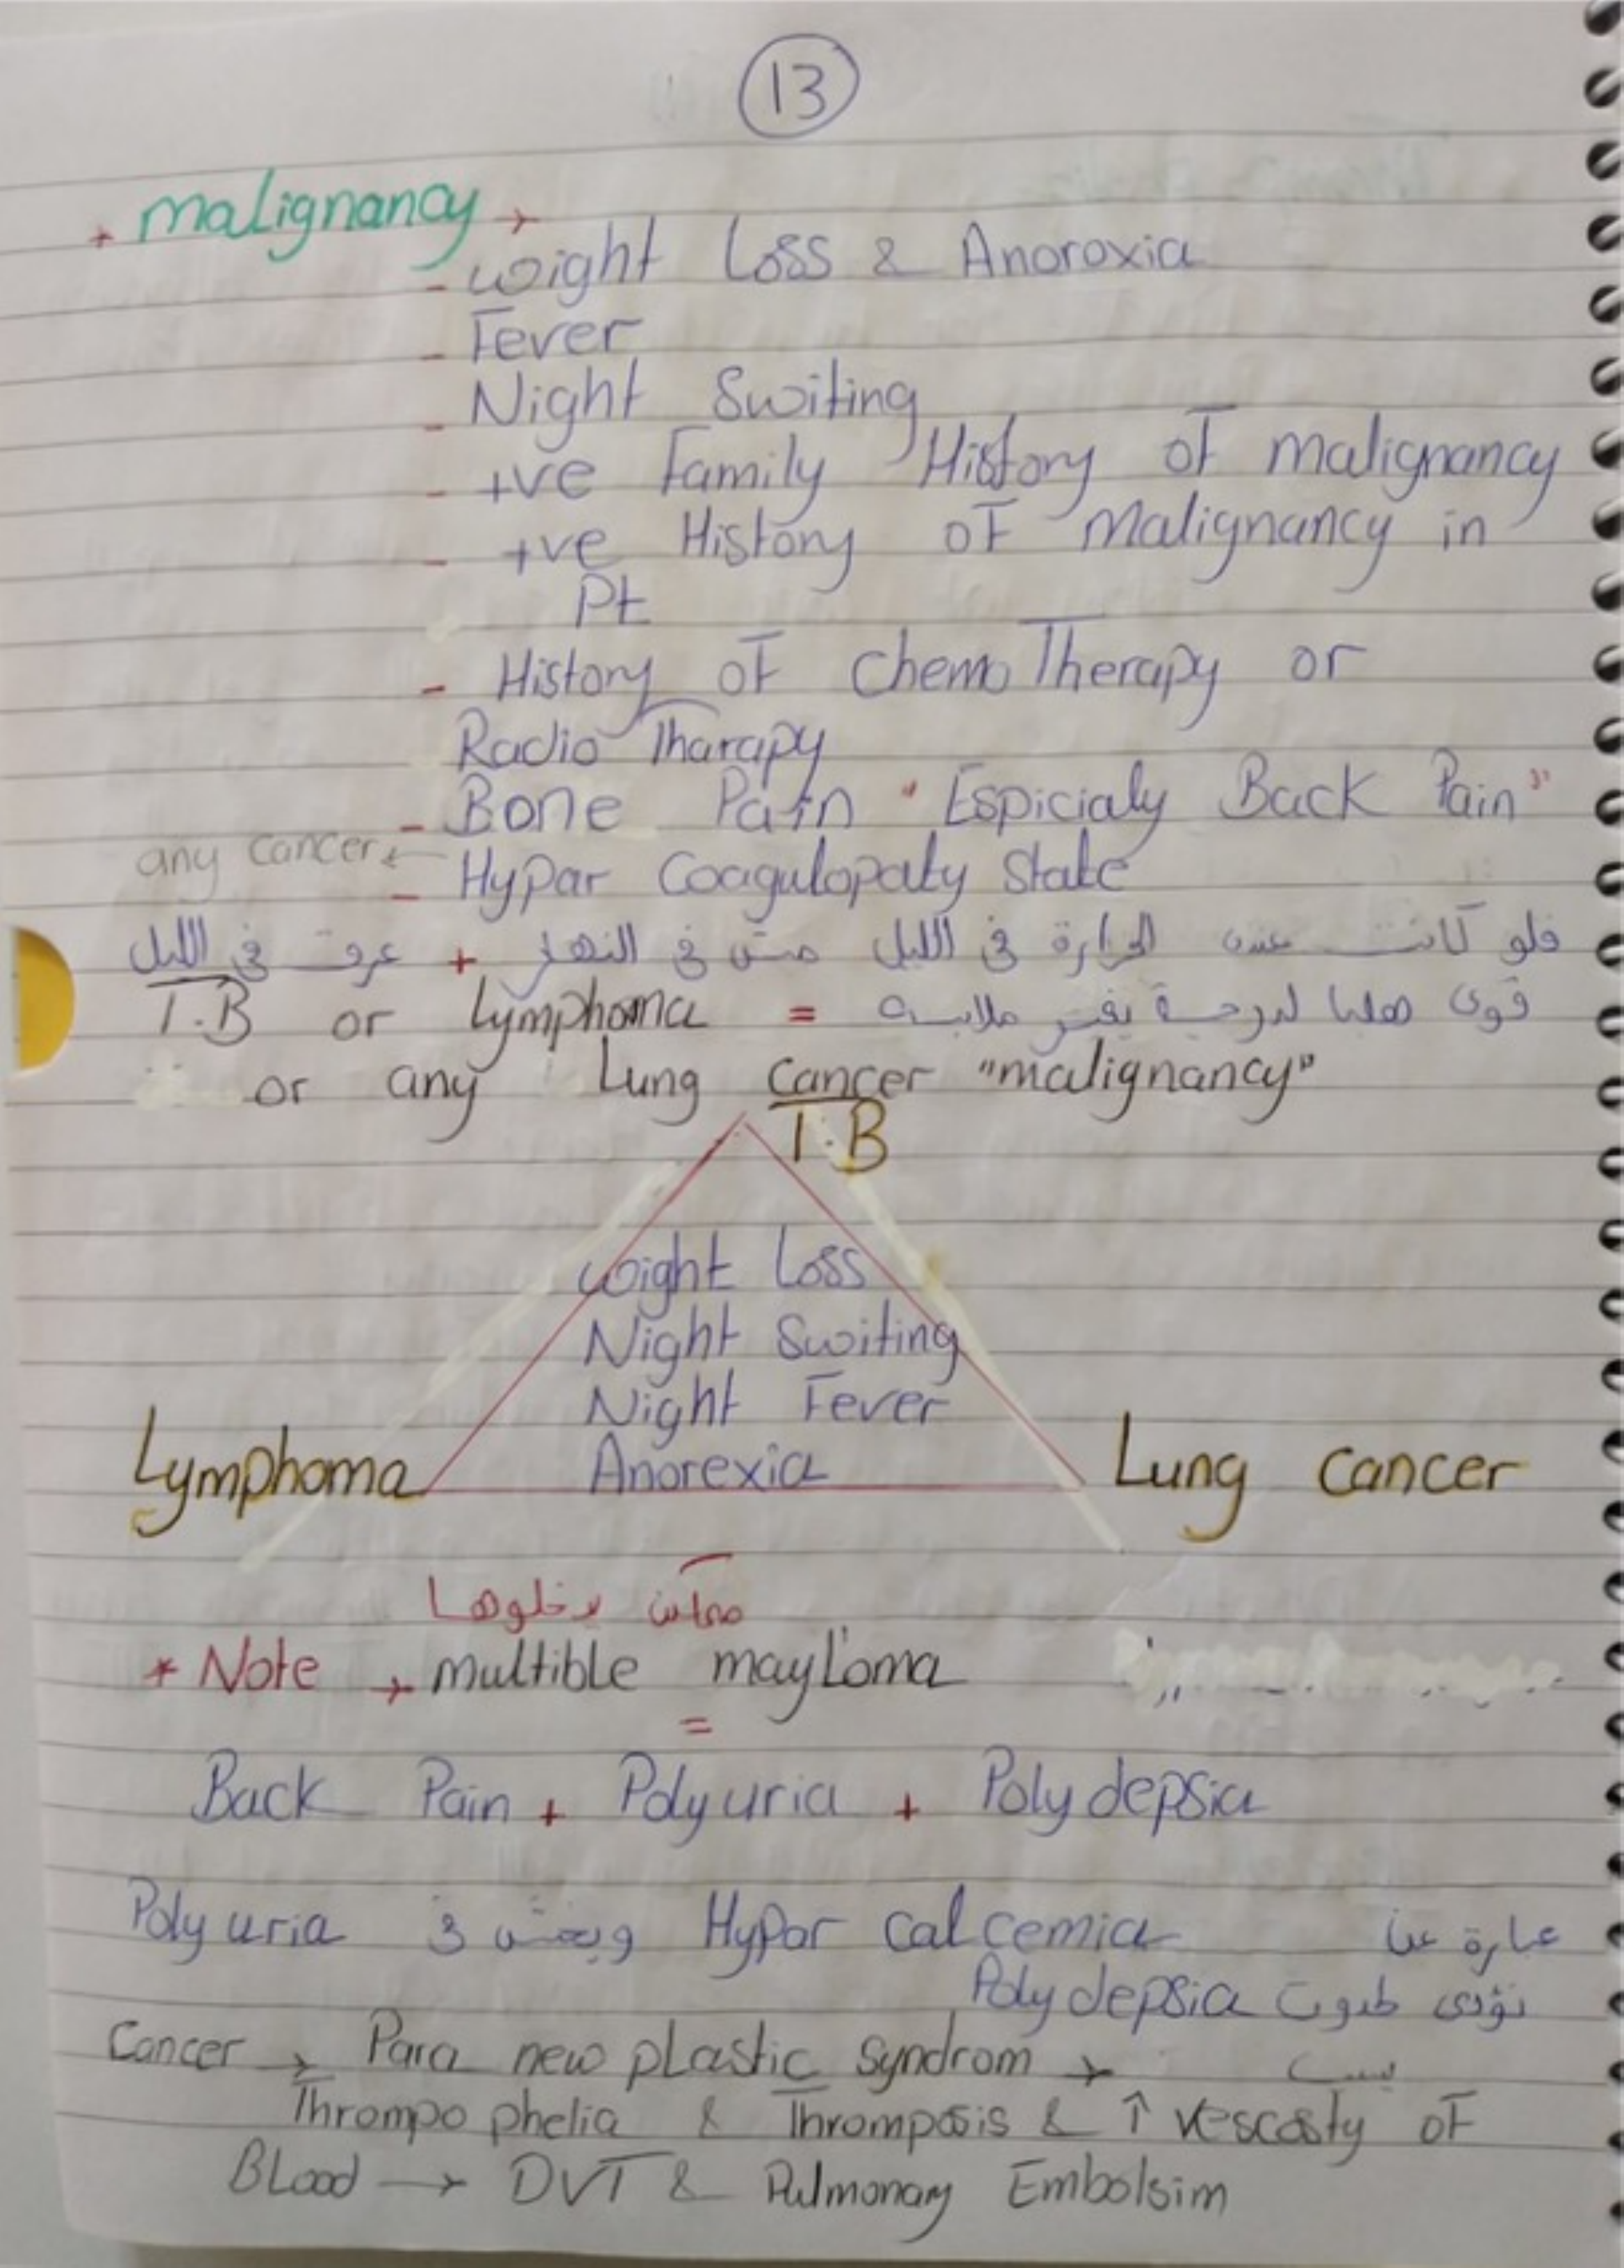 13
* malignancy →
- weight Loss & Anoroxia
- Fever
- Night Switing
- +ve Family History of malignancy
- +ve History of Malignancy in
Pt
- History of chemo Therapy or
Radio Tharapy
- Bone Pain "Espicialy Back Pain"
any cancer ←
- Hypar Coagulopaty State
فلو كانت عنده الحرارة في الليل مش في النهار + عرق في الليل
قوى هلبا لدرجة يغير ملابسه = T.B or Lymphoma
or any Lung cancer "malignancy"
T.B
wight Loss
Night Switing
Night Fever
Anorexia
Lymphoma
Lung cancer
يدخلوها
* Note → multible mayloma
=
Back Pain + Polyuria + Poly depsia
عبارة عن Hypar calcemia في Poly uria
تؤدى Poly depsia
Cancer → Para new plastic syndrom → يسبب
Thrompo phelia & Thromposis & ↑ vescosty of
Blood → DVT & Pulmonary Embolsim